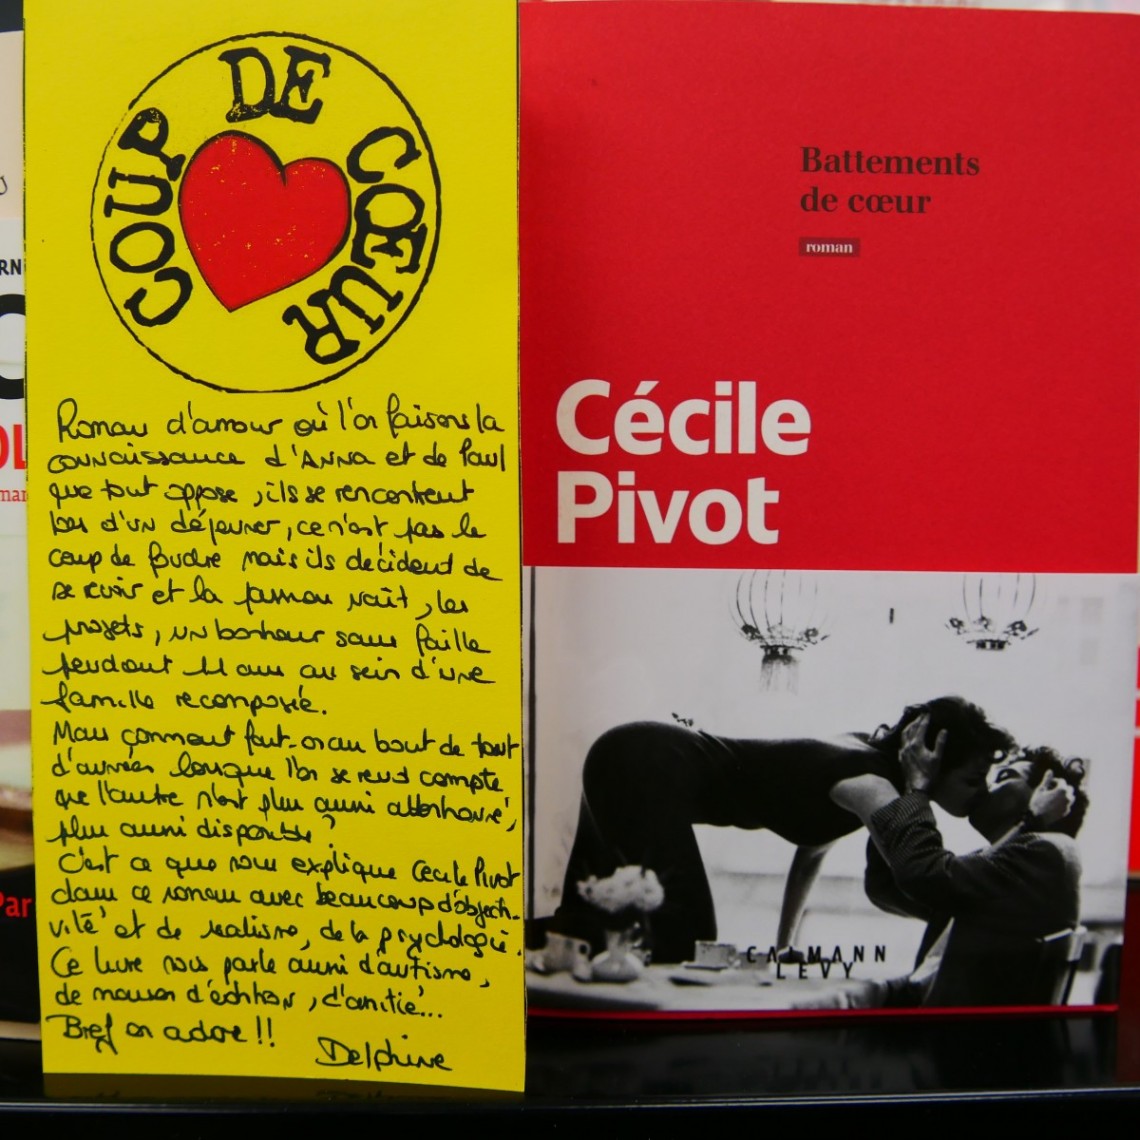 COUP DE CŒUR
Roman d'amour où l'on faisons la
connaissance d'Anna et de Paul
que tout oppose, ils se rencontrent
lors d'un déjeuner, ce n'est pas le
coup de foudre mais ils décident de
se revoir et la passion naît, les
projets, un bonheur sans faille
pendant 11 ans au sein d'une
famille recomposée.
Mais comment fait-on au bout de tant
d'années lorsque l'on se rend compte
que l'autre n'est plus aussi attentionné,
plus aussi disponible ?
C'est ce que nous explique Cécile Pivot
dans ce roman avec beaucoup d'objecti-
vité et de réalisme, de la psychologie.
Ce livre nous parle aussi d'autisme,
de maison d'édition, d'amitié...
Bref on adore !!
Delphine
Battements
de cœur
roman
Cécile
Pivot
CALMANN
LEVY
Par